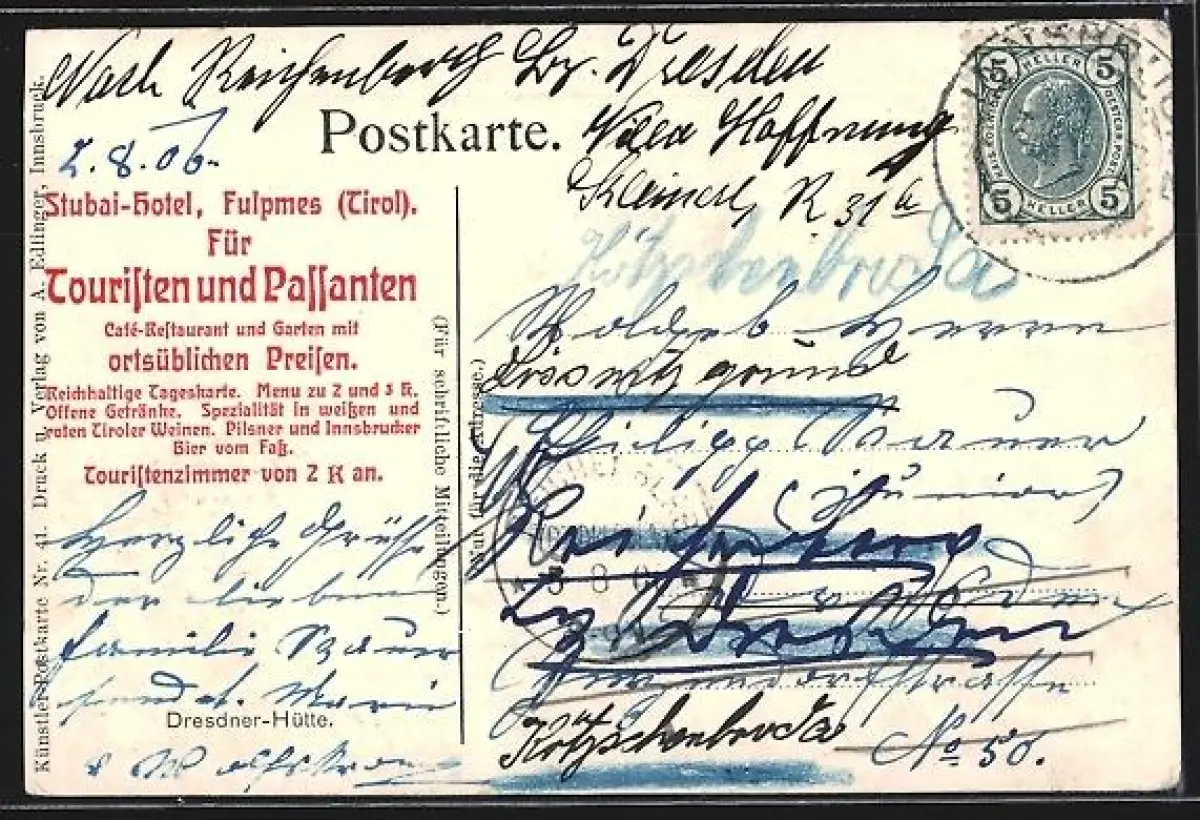 Nach Reichenberg Bz. Dresden
Postkarte.
Villa Hoffnung
2.8.06.
R 31 b
5 HELLER 5
5 HELLER 5
Stubai-Hotel, Fulpmes (Tirol).
Für
Touriſten und Paſſanten
Café-Reſtaurant und Garten mit
ortsüblichen Preiſen.
Reichhaltige Tageskarte. Menu zu 2 und 3 K.
Offene Getränke. Spezialität in weißen und
roten Tiroler Weinen. Pilsner und Innsbrucker
Bier vom Faß.
Touriſtenzimmer von 2 K an.
Kötzschenbroda
Herrn
Lössnitzgrund
Philipp Bauer
(Junior)
Reichenberg
Bz Dresden
Dresden
Kötzschenbroda
No 50.
Herzliche Grüße
der lieben
Familie Bauer
Marie
Dresdner-Hütte.
(Für schriftliche Mitteilungen.)
(Nur für die Adresse.)
Künstler-Postkarte Nr. 41. Druck u. Verlag von A. Edlinger, Innsbruck.